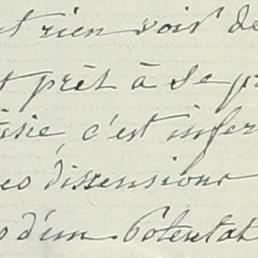 t rien voir de
t prêt à se p
sie, c'est infer
es dissensions
s d'un Potentat